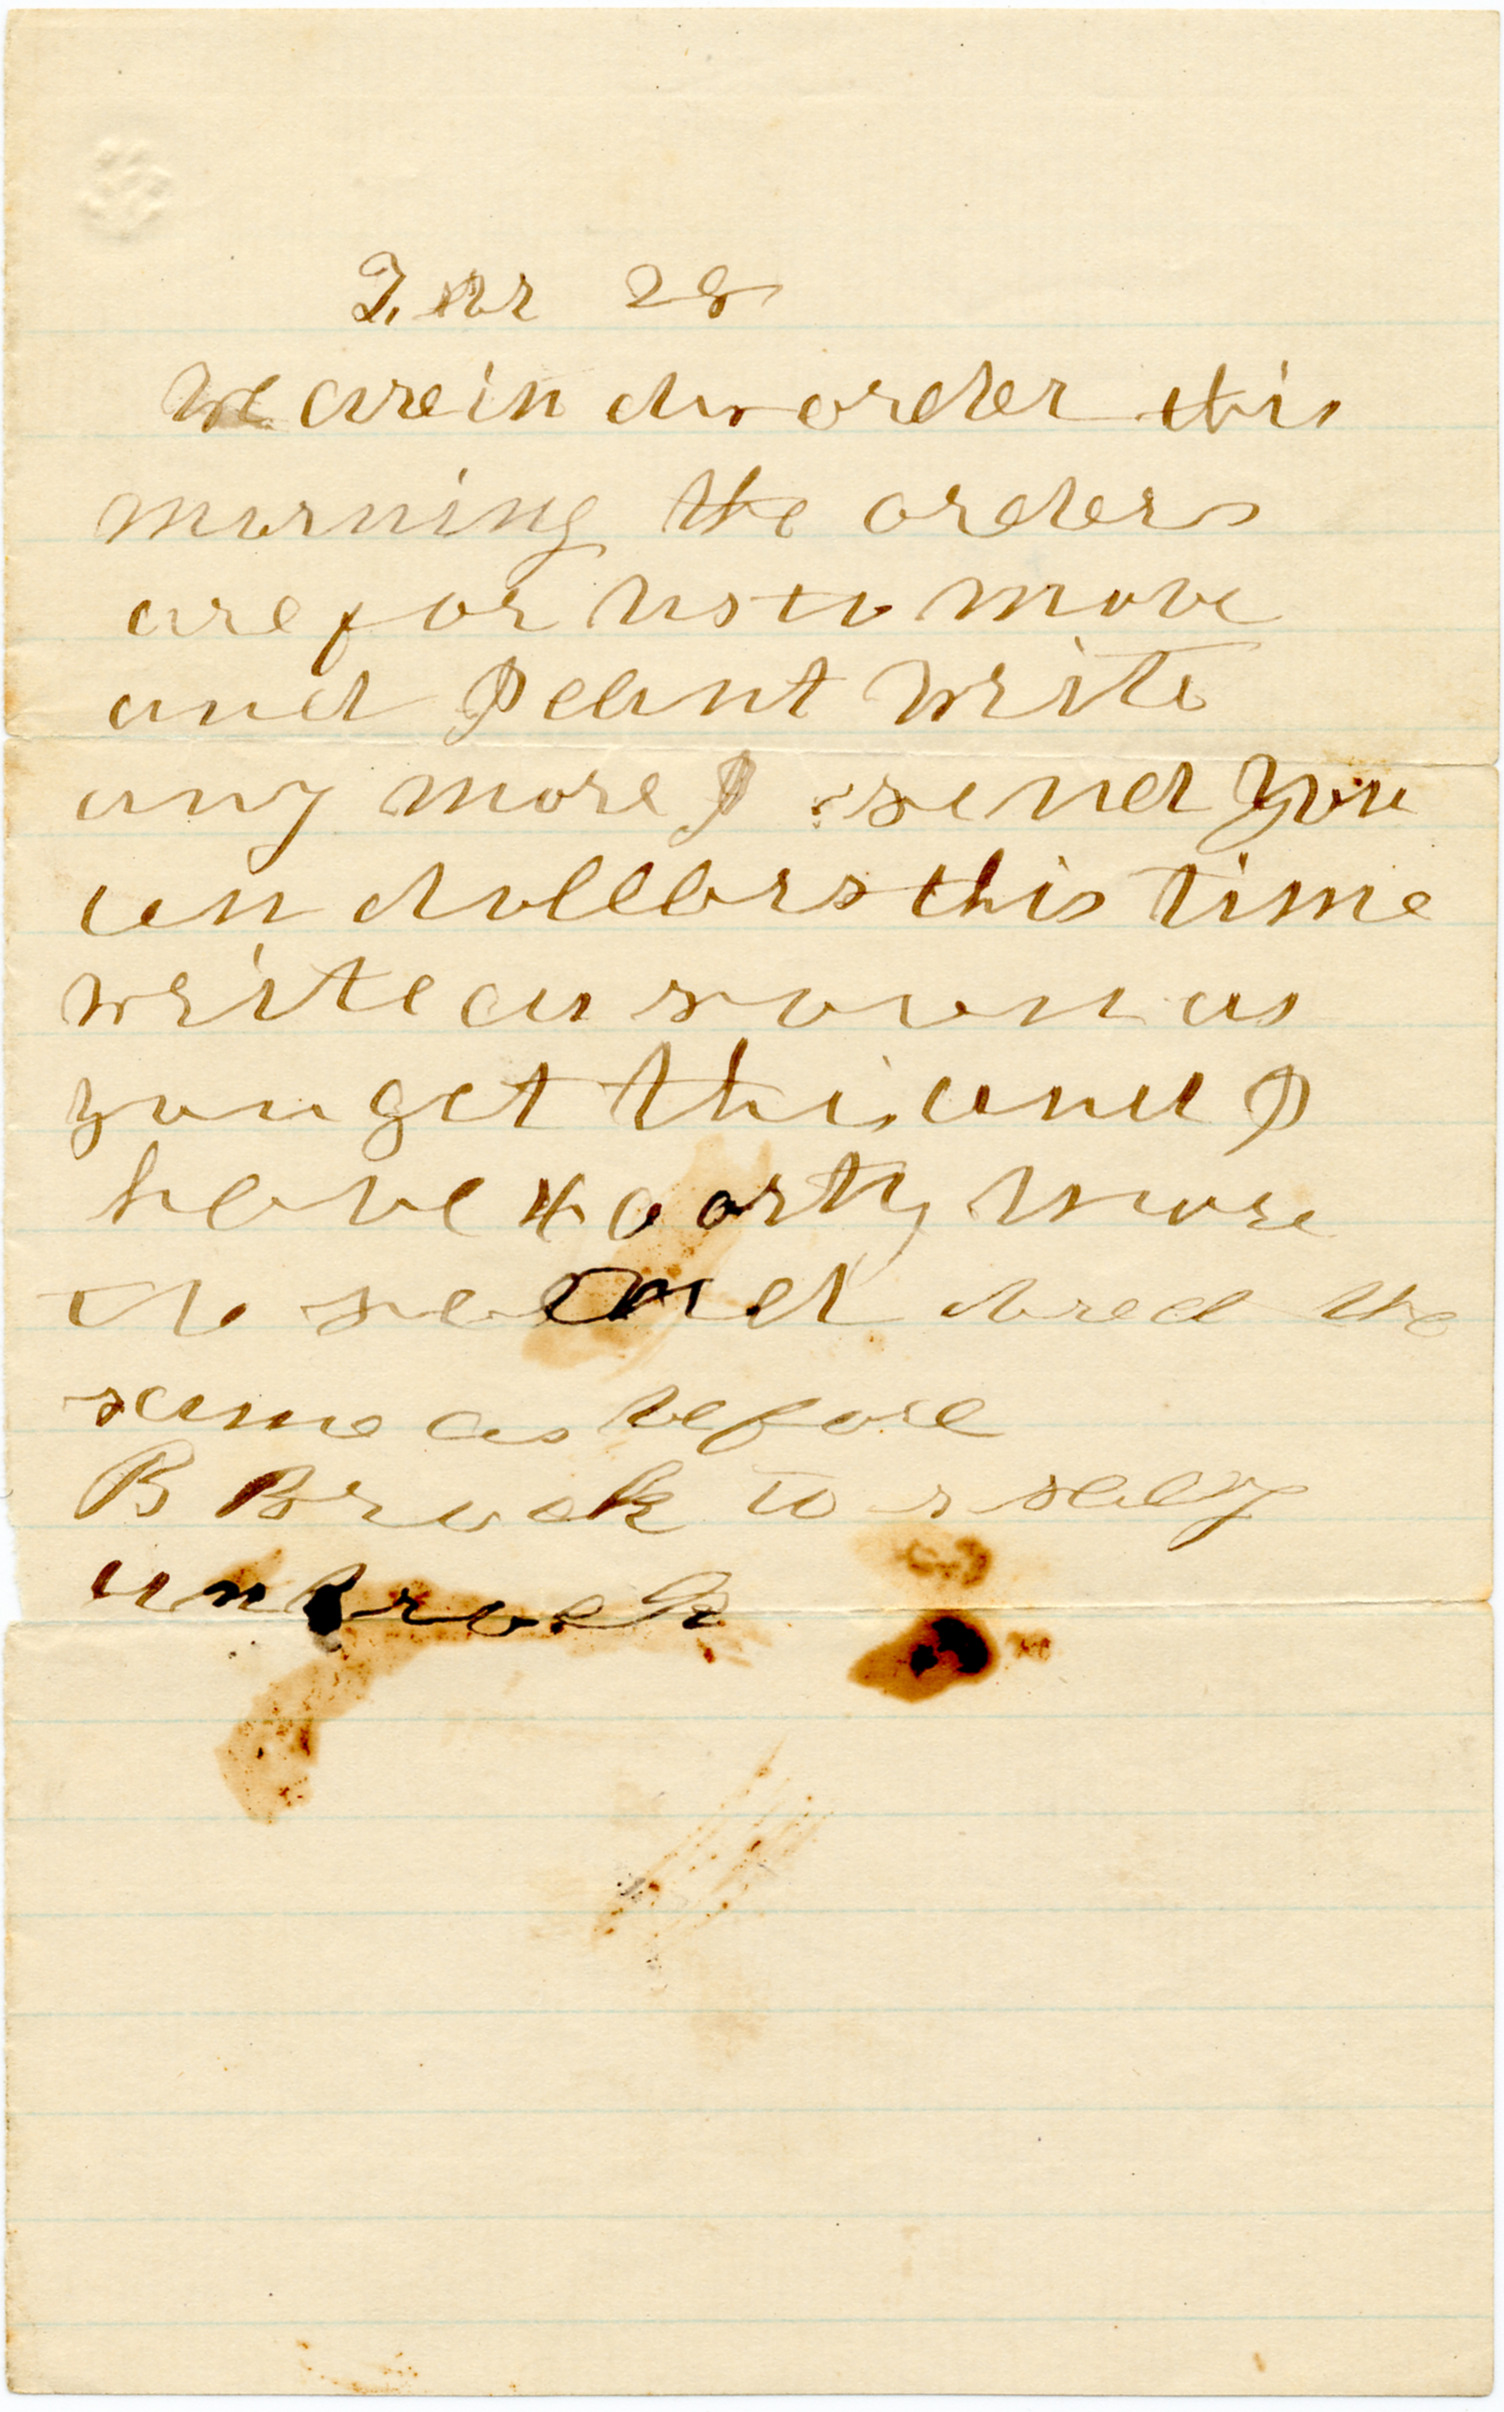 28
We are in disorder this
morning the orders
are for us to move
and I cant write
any more I send you
dollars this time
write as soon as
you get this and I
have more
to send the
same as before
B Brock to
an brock